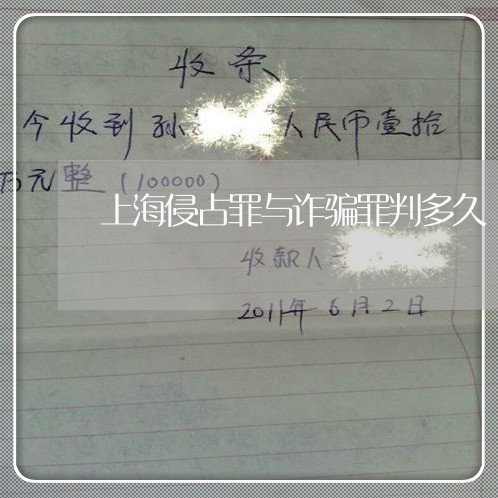 收条
今收到孙 人民币壹拾
万元整(100000)
上海侵占罪与诈骗罪判多久
收款人
2011年6月2日